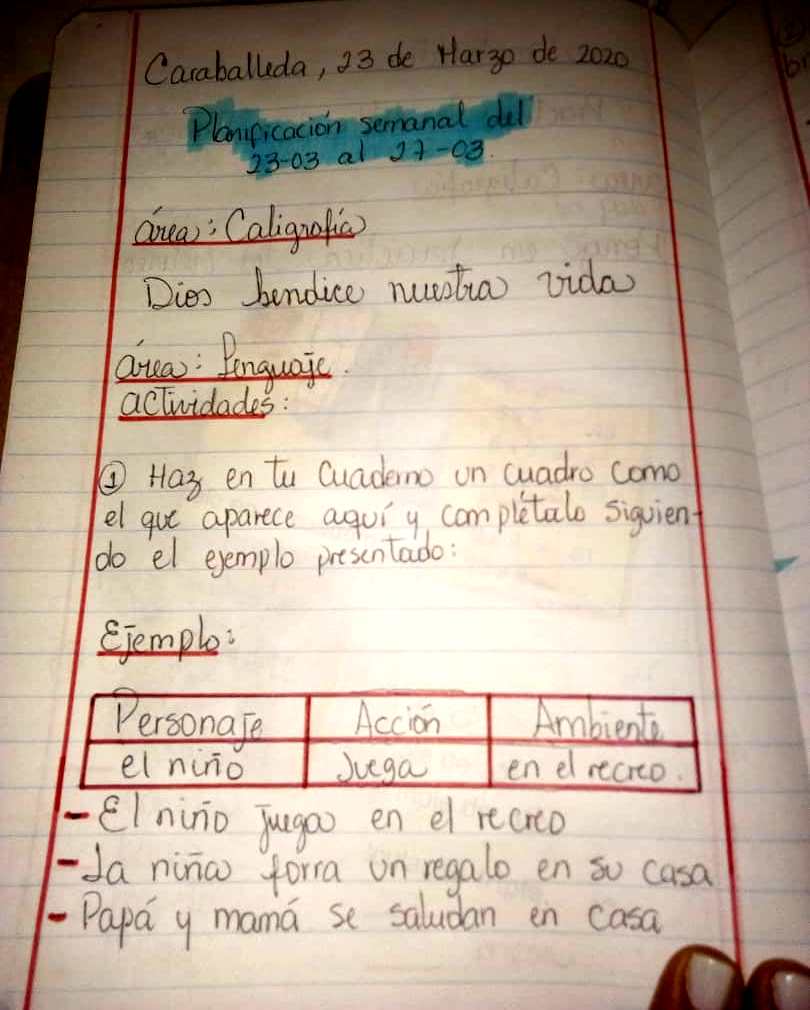 Caraballeda, 23 de Marzo de 2020
Planificación semanal del
23-03 al 27-03.
área: Caligrafía
Dios bendice nuestra vida
área: Lenguaje.
actividades:
① Haz en tu cuaderno un cuadro como
el que aparece aquí y complétalo siguien-
do el ejemplo presentado:
Ejemplo:
Personaje Acción Ambiente
el niño Juega en el recreo.
- El niño juega en el recreo
- La niña forra un regalo en su casa
- Papá y mamá se saludan en casa